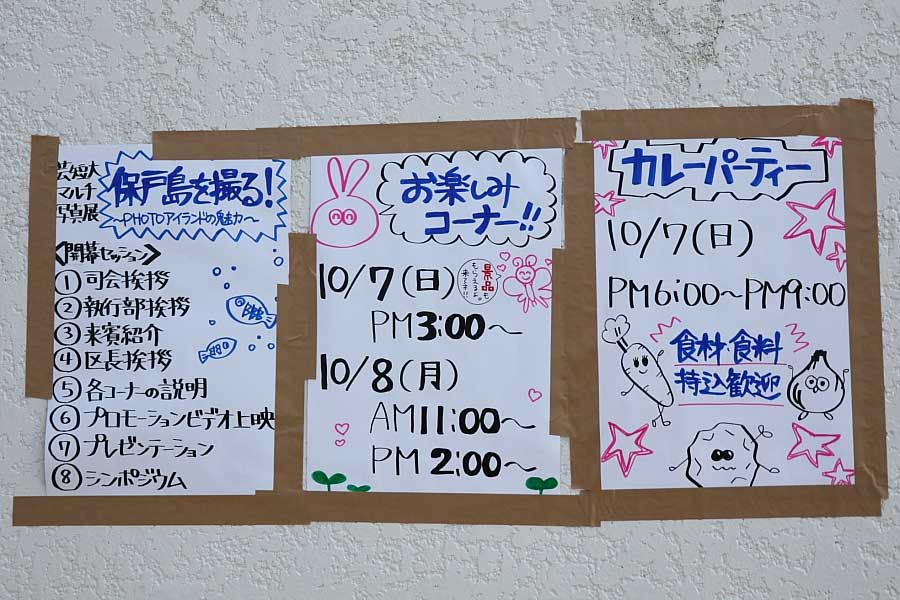 芸短大
マルチ
写真展
保戸島を撮る!
~PHOTOアイランドの魅力~
〈開幕セッション〉
①司会挨拶
②執行部挨拶
③来賓紹介
④区長挨拶
⑤各コーナーの説明
⑥プロモーションビデオ上映
⑦プレゼンテーション
⑧シンポジウム
お楽しみ
コーナー!!
10/7(日)
景品も
もらえるよ。
来てネ!!
PM3:00~
10/8(月)
AM11:00~
PM2:00~
カレーパーティー
10/7(日)
PM6:00~PM9:00
食材・食料
持込歓迎